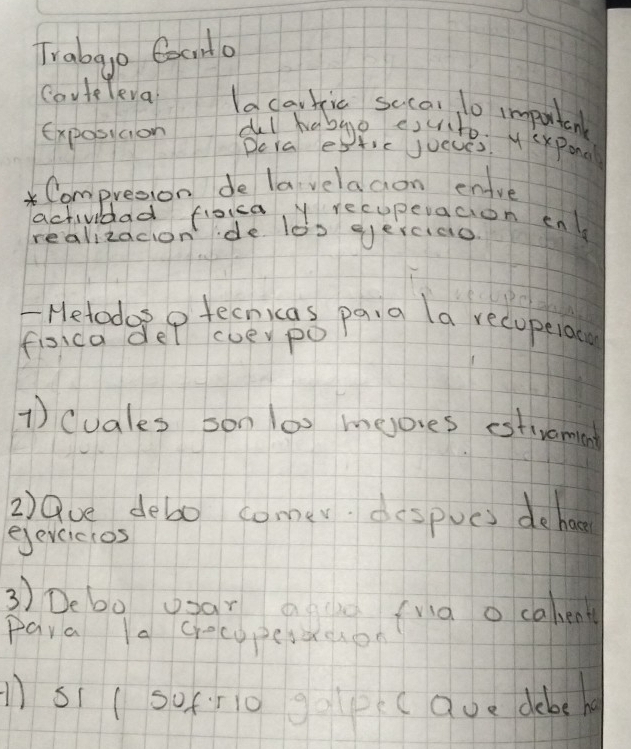 Trabajo Escrito
Cartelera. la cartelera sacar lo important
Exposicion del trabajo escrito. y expone
Para este jueves.
* Compresion de la relacion entre
actividad fisica y recuperacion en la
realizacion de los ejercicio.
- Metodos o tecnicas para la recuperacion
fisica del cuerpo
1) Cuales son los mejores estiramient
2) Que debo comer despues de hacer
ejercicios
3) Debo usar agua fria o caliente
Para la recuperacion
1) si sufrio golpes que debe ha